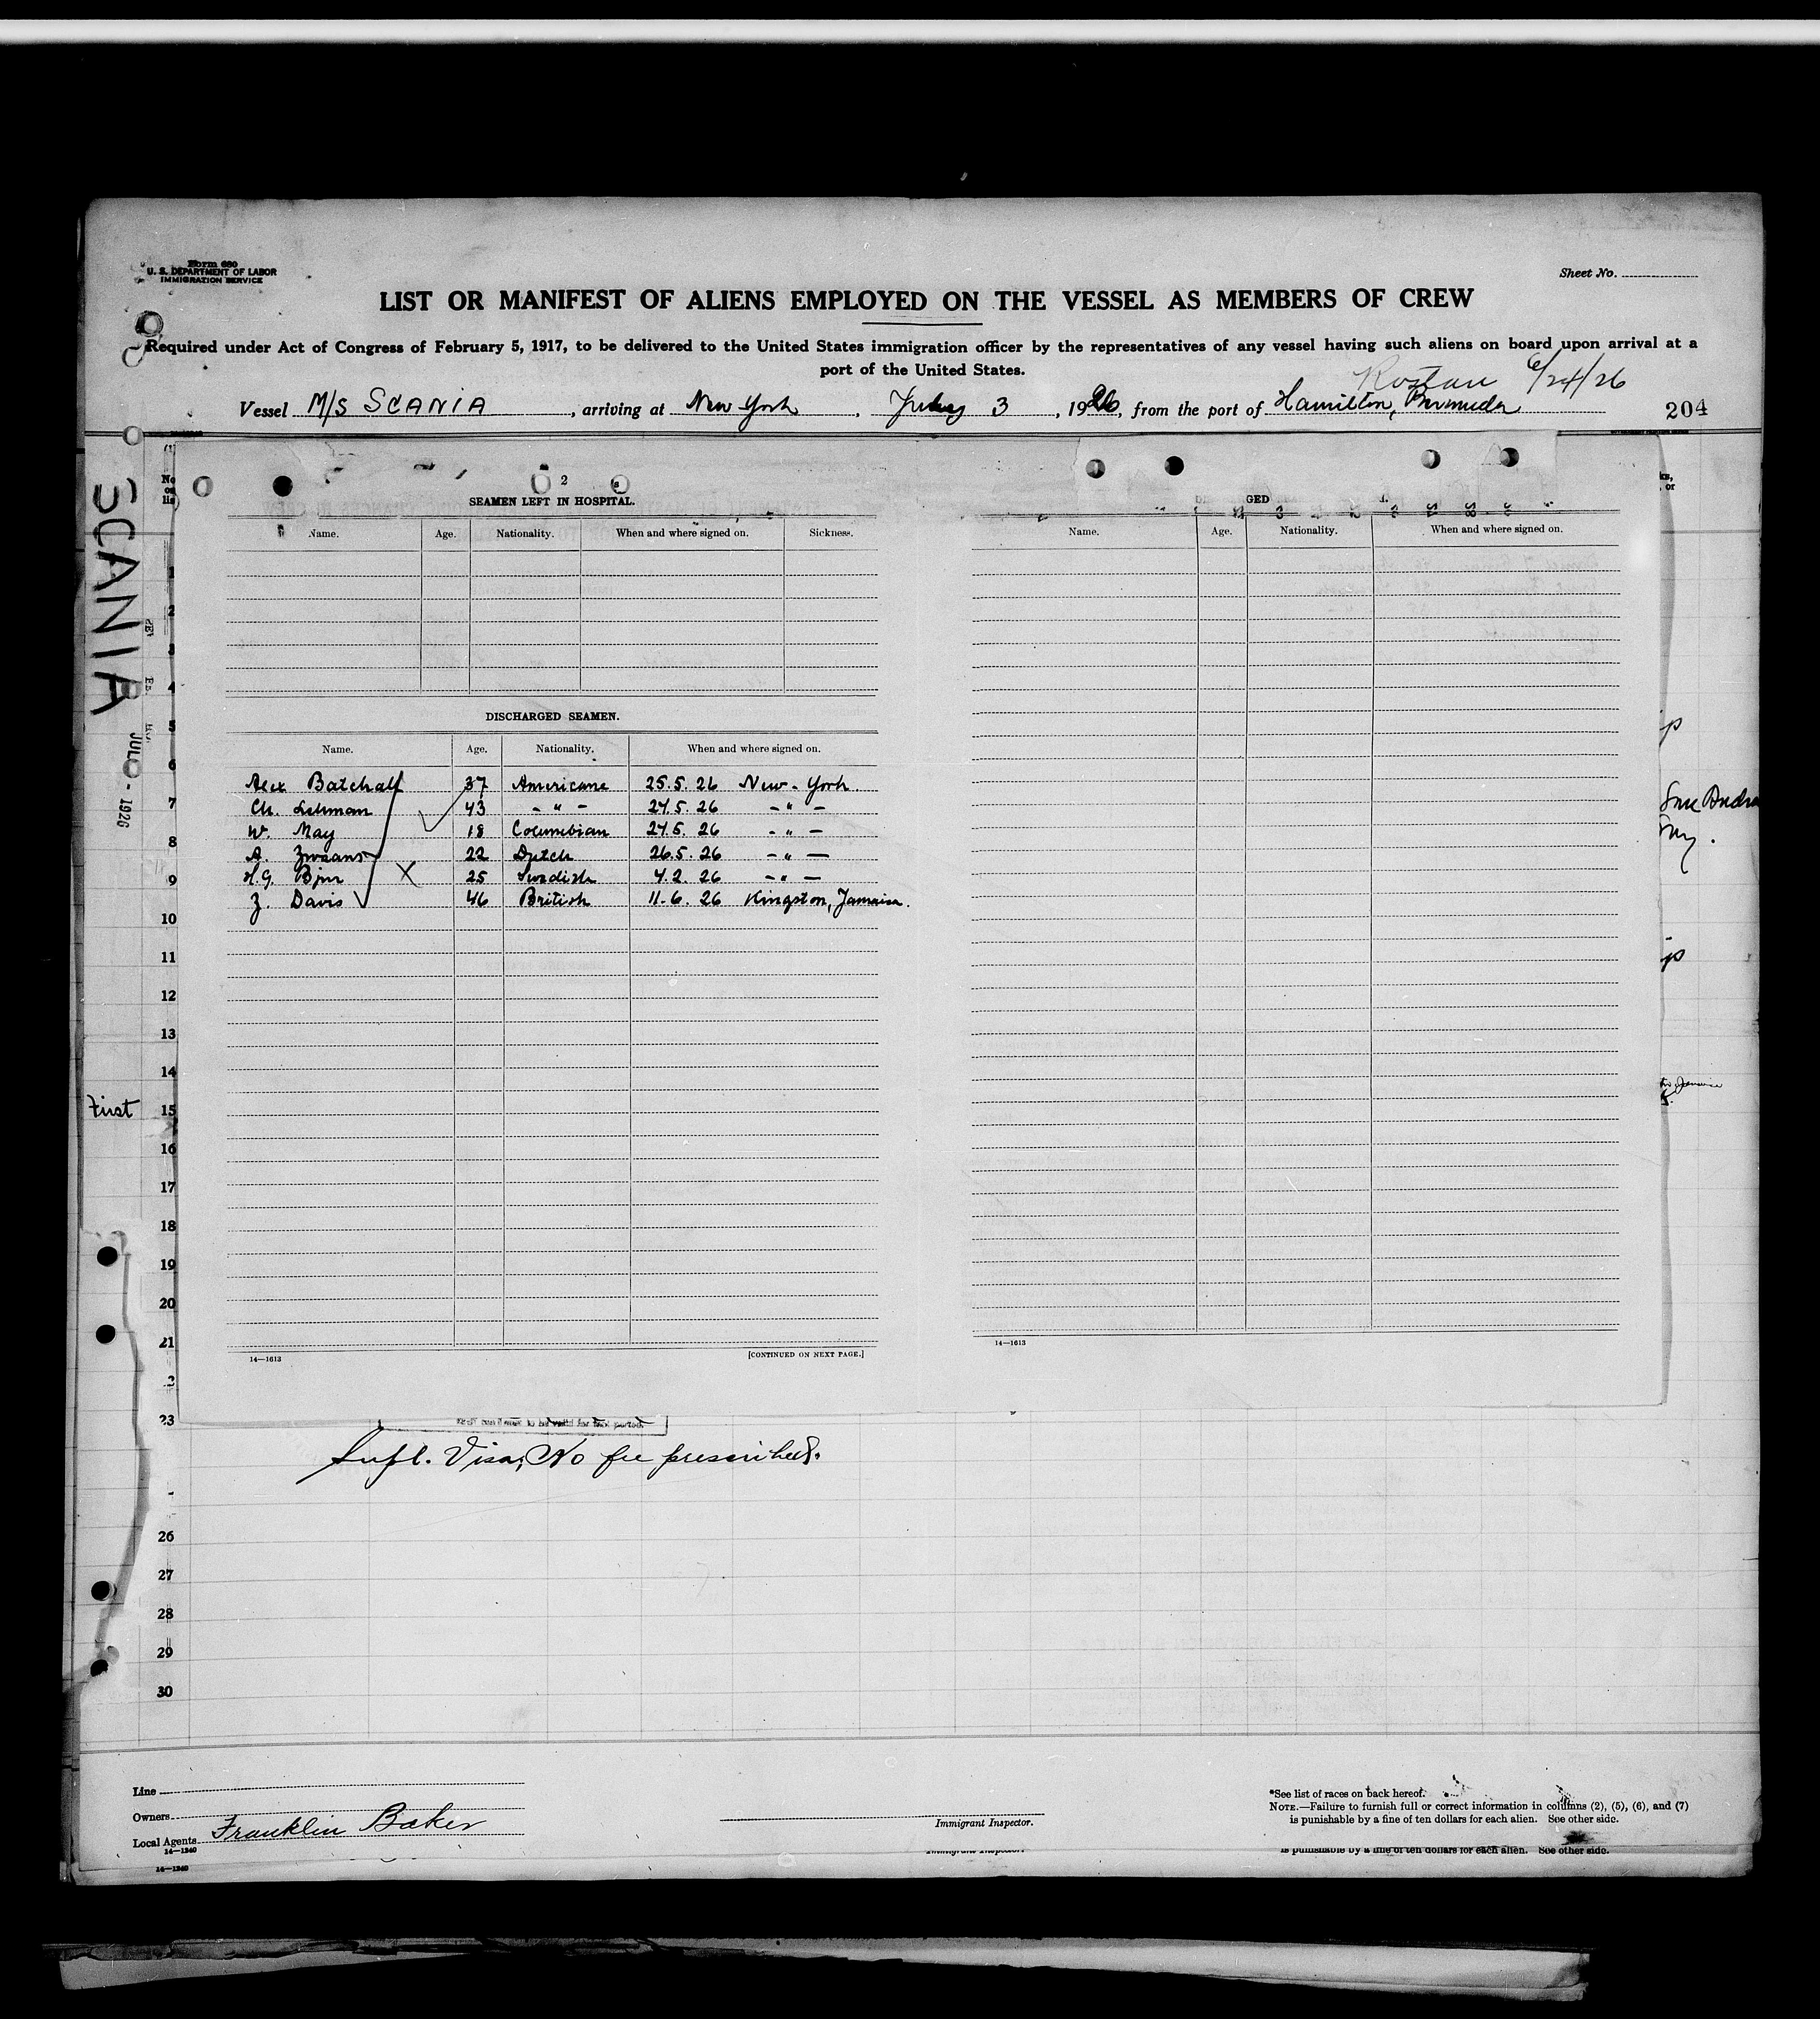 Form 680
U. S. DEPARTMENT OF LABOR
IMMIGRATION SERVICE
Sheet No.
LIST OR MANIFEST OF ALIENS EMPLOYED ON THE VESSEL AS MEMBERS OF CREW
Required under Act of Congress of February 5, 1917, to be delivered to the United States immigration officer by the representatives of any vessel having such aliens on board upon arrival at a
port of the United States.
6/24/26
Vessel M/S SCANIA, arriving at New York, July 3, 1926, from the port of Hamilton, Bermuda
204
SCANIA
JUL - 1926
2
SEAMEN LEFT IN HOSPITAL.
GED
Name. Age. Nationality. When and where signed on. Sickness.
Name. Age. Nationality. When and where signed on.
DISCHARGED SEAMEN.
Name. Age. Nationality. When and where signed on.
Alex Batchalf 37 Americane 25.5.26 New-York.
Ch. Lehman 43 -"- 27.5.26 -"-
W. May 18 Columbian 27.5.26 -"-
A. Zwaans 22 Dutch 26.5.26 -"-
H.G. Bjur 25 Swedish 4.2.26 -"-
Z. Davis 46 British 11.6.26 Kingston, Jamaica.
1
2
3
4
5
6
7
8
9
10
11
12
13
14
First 15
16
17
18
19
20
21
23
26
27
28
29
30
14—1613
[CONTINUED ON NEXT PAGE.]
14—1613
Supl. Visa, No fee prescribed.
Line
Owners
Local Agents Franklin Baker
14—1240
14—1240
Immigrant Inspector.
Immigrant Inspector.
*See list of races on back hereof.
NOTE.—Failure to furnish full or correct information in columns (2), (5), (6), and (7)
is punishable by a fine of ten dollars for each alien. See other side.
is punishable by a fine of ten dollars for each alien. See other side.